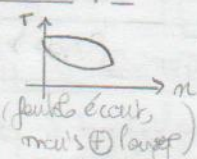 r
n
(faible écart,
mais ⊕ large)